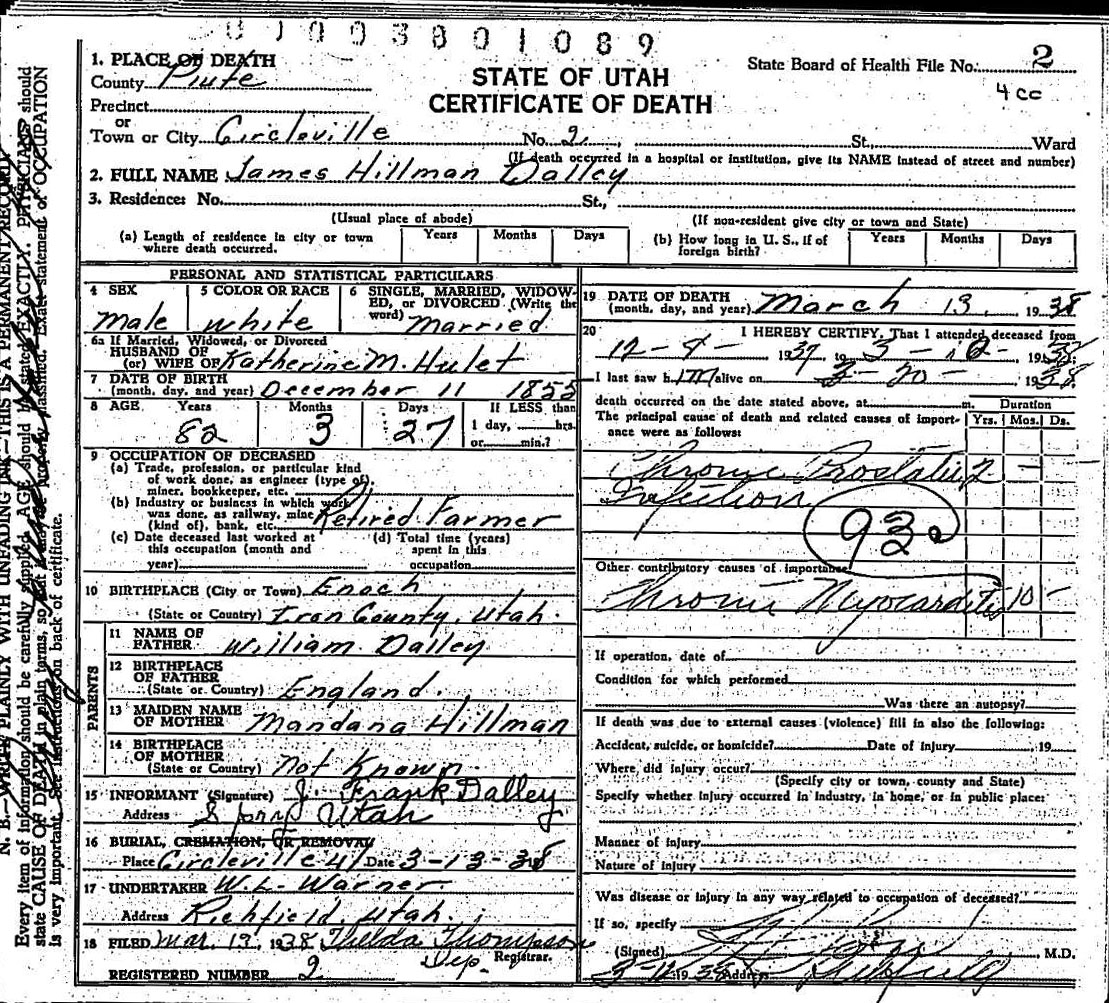 0 1 0 0 3 8 0 1 0 8 9
1. PLACE OF DEATH
County Piute
Precinct
or
Town or City Circleville No. 2. St., Ward
STATE OF UTAH
CERTIFICATE OF DEATH
State Board of Health File No. 2
4 cc
(If death occurred in a hospital or institution, give its NAME instead of street and number)
2. FULL NAME James Hillman Dalley
3. Residence: No. St.,
(Usual place of abode) (If non-resident give city or town and State)
(a) Length of residence in city or town where death occurred. Years Months Days
(b) How long in U. S., if of foreign birth? Years Months Days
PERSONAL AND STATISTICAL PARTICULARS
4 SEX 5 COLOR OR RACE 6 SINGLE, MARRIED, WIDOW-
ED, or DIVORCED (Write the
word)
Male White Married
6a If Married, Widowed, or Divorced
HUSBAND OF
(or) WIFE OF Katherine M. Hulet
7 DATE OF BIRTH
(month, day, and year) December 11 1855
8 AGE Years Months Days If LESS than
1 day, hrs.
or min.?
82 3 27
9 OCCUPATION OF DECEASED
(a) Trade, profession, or particular kind
of work done, as engineer (type of),
miner, bookkeeper, etc.
(b) Industry or business in which work
was done, as railway, mine
(kind of), bank, etc. Retired Farmer
(c) Date deceased last worked at
this occupation (month and
year)
(d) Total time (years)
spent in this
occupation
10 BIRTHPLACE (City or Town) Enoch
(State or Country) Iron County, Utah.
PARENTS
11 NAME OF
FATHER William Dalley
12 BIRTHPLACE
OF FATHER
(State or Country) England.
13 MAIDEN NAME
OF MOTHER Mandana Hillman
14 BIRTHPLACE
OF MOTHER
(State or Country) Not Known
15 INFORMANT (Signature) J. Frank Dalley
Address Utah
16 BURIAL, CREMATION, OR REMOVAL
Place Circleville Date 3-13-38
17 UNDERTAKER W. L. Warner
Address Richfield, Utah.
18 FILED Mar. 13, 1938 Thelda Thompson
Dep. Registrar.
REGISTERED NUMBER 2
19 DATE OF DEATH
(month, day, and year) March 13, 1938
20 I HEREBY CERTIFY, That I attended deceased from
1937 to 3- 1938;
I last saw him alive on 1938
death occurred on the date stated above, at m. Duration
The principal cause of death and related causes of import-
ance were as follows: Yrs. Mos. Ds.
Chronic Prostatic 2 - -
Infection
93
Other contributory causes of importance
Chronic Myocarditis 10 -
If operation, date of
Condition for which performed
Was there an autopsy?
If death was due to external causes (violence) fill in also the following:
Accident, suicide, or homicide? Date of injury , 19
Where did injury occur?
(Specify city or town, county and State)
Specify whether injury occurred in industry, in home, or in public place:
Manner of injury
Nature of injury
Was disease or injury in any way related to occupation of deceased?
If so, specify
(Signed) , M.D.
Address Richfield
N. B.—WRITE PLAINLY WITH UNFADING INK—THIS IS A PERMANENT RECORD.
Every item of information should be carefully supplied. AGE should be stated EXACTLY. PHYSICIANS should
state CAUSE OF DEATH in plain terms, so that it may be properly classified. Exact statement of OCCUPATION
is very important. See instructions on back of certificate.